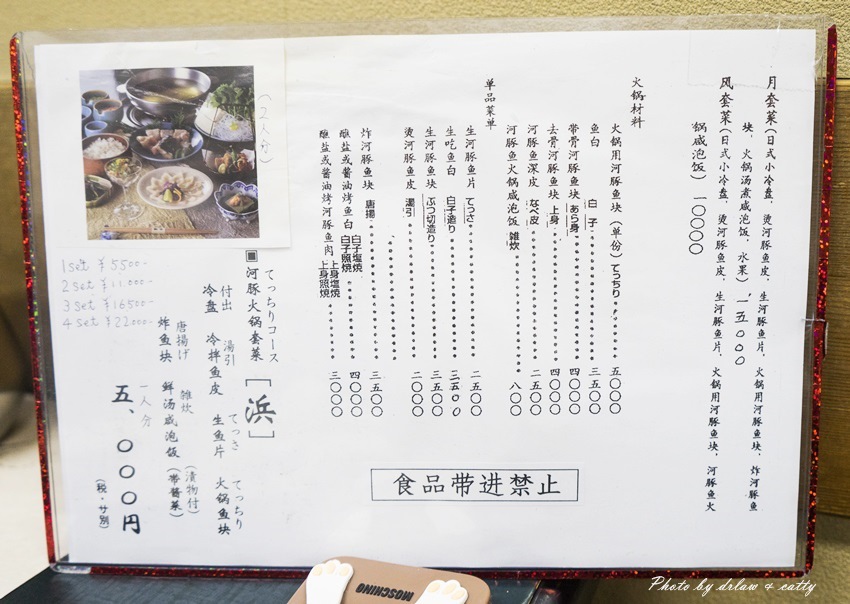 月套菜(日式小冷盘，烫河豚鱼皮，生河豚鱼片，火锅用河豚鱼块，炸河豚鱼
块，火锅汤煮咸泡饭，水果) 一五〇〇〇
风套菜(日式小冷盘，烫河豚鱼皮，生河豚鱼片，火锅用河豚鱼块，河豚鱼火
锅咸泡饭) 一〇〇〇〇
火锅材料
火锅用河豚鱼块(单份) てっちり 五〇〇〇
鱼白 白子 三五〇〇
带骨河豚鱼块 あら身 四〇〇〇
去骨河豚鱼块 上身 四〇〇〇
河豚鱼深皮 なべ皮 二五〇〇
河豚鱼火锅咸泡饭 雑炊 八〇〇
单品菜单
生河豚鱼片 てっさ 二五〇〇
生吃鱼白 白子造り 三五〇〇
生河豚鱼块 ぶつ切造り 三五〇〇
烫河豚鱼皮 湯引 二〇〇〇
炸河豚鱼块 唐揚 三五〇〇
醮盐或酱油烤鱼白 白子塩焼 白子照焼 四〇〇〇
醮盐或酱油烤河豚鱼肉 上身塩焼 上身照焼 三〇〇〇
食品带进禁止
(2人分)
てっちりコース
■河豚火锅套菜 [浜]
付出 湯引 てっさ てっちり
冷盘 冷拌鱼皮 生鱼片 火锅鱼块
唐揚げ 雑炊 (漬物付)
炸鱼块 鲜汤咸泡饭 (带酱菜)
一人分
五、〇〇〇円
(税・サ別)
1set ¥5500-
2set ¥11000-
3set ¥16500-
4set ¥22000-
MOSCHINO
Photo by drlaw & catty